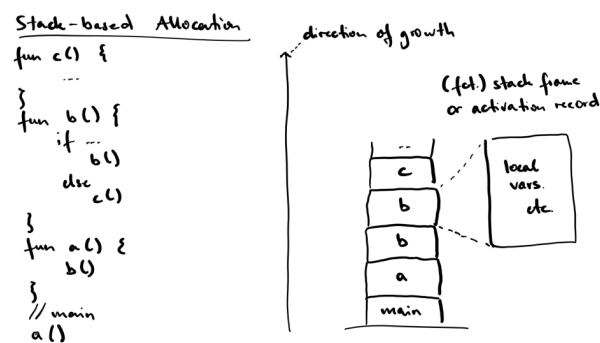 Stack-based Allocation
fun c() {
...
}
fun b() {
if ...
b()
else
c()
}
fun a() {
b()
}
// main
a()
direction of growth
(fct.) stack frame
or activation record
...
c
b
b
a
main
local
vars.
etc.